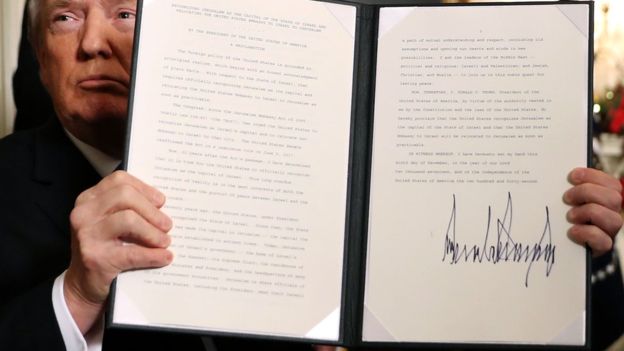 RECOGNIZING JERUSALEM AS THE CAPITAL OF THE STATE OF ISRAEL AND
RELOCATING THE UNITED STATES EMBASSY TO ISRAEL TO JERUSALEM
BY THE PRESIDENT OF THE UNITED STATES OF AMERICA
A PROCLAMATION
The foreign policy of the United States is grounded in
principled realism, which begins with an honest acknowledgment
of plain facts. With respect to the State of Israel, that
requires officially recognizing Jerusalem as its capital and
relocating the United States Embassy to Israel to Jerusalem as
soon as practicable.
The Congress, since the Jerusalem Embassy Act of 1995
the United States to
recognize Jerusalem as Israel's capital and to relocate our
Embassy to Israel to that city. The United States Senate
reaffirmed the Act in a unanimous vote on June 5, 2017.
Now, 22 years after the Act's passage, I have determined
that it is time for the United States to officially recognize
Jerusalem as the capital of Israel. This long overdue
recognition of reality is in the best interests of both the
United States and the pursuit of peace between Israel and the
years ago, the United States, under President
recognized the State of Israel. Since then, the State
made its capital in Jerusalem -- the capital the
people established in ancient times. Today, Jerusalem
of Israel's government -- the home of Israel's
the Knesset; its Supreme Court; the residences of
Minister and President; and the headquarters of many
government ministries. Jerusalem is where officials of
the United States, including the President, meet their Israeli
a path of mutual understanding and respect, rethinking old
assumptions and opening our hearts and minds to new
possibilities. I ask the leaders of the Middle East --
political and religious; Israeli and Palestinian; and Jewish,
Christian, and Muslim -- to join us in this noble quest for
lasting peace.
NOW, THEREFORE, I, DONALD J. TRUMP, President of the
United States of America, by virtue of the authority vested in
me by the Constitution and the laws of the United States, do
hereby proclaim that the United States recognizes Jerusalem as
the capital of the State of Israel and that the United States
Embassy to Israel will be relocated to Jerusalem as soon as
practicable.
IN WITNESS WHEREOF, I have hereunto set my hand this
sixth day of December, in the year of our Lord
two thousand seventeen, and of the Independence of the
United States of America the two hundred and forty-second.